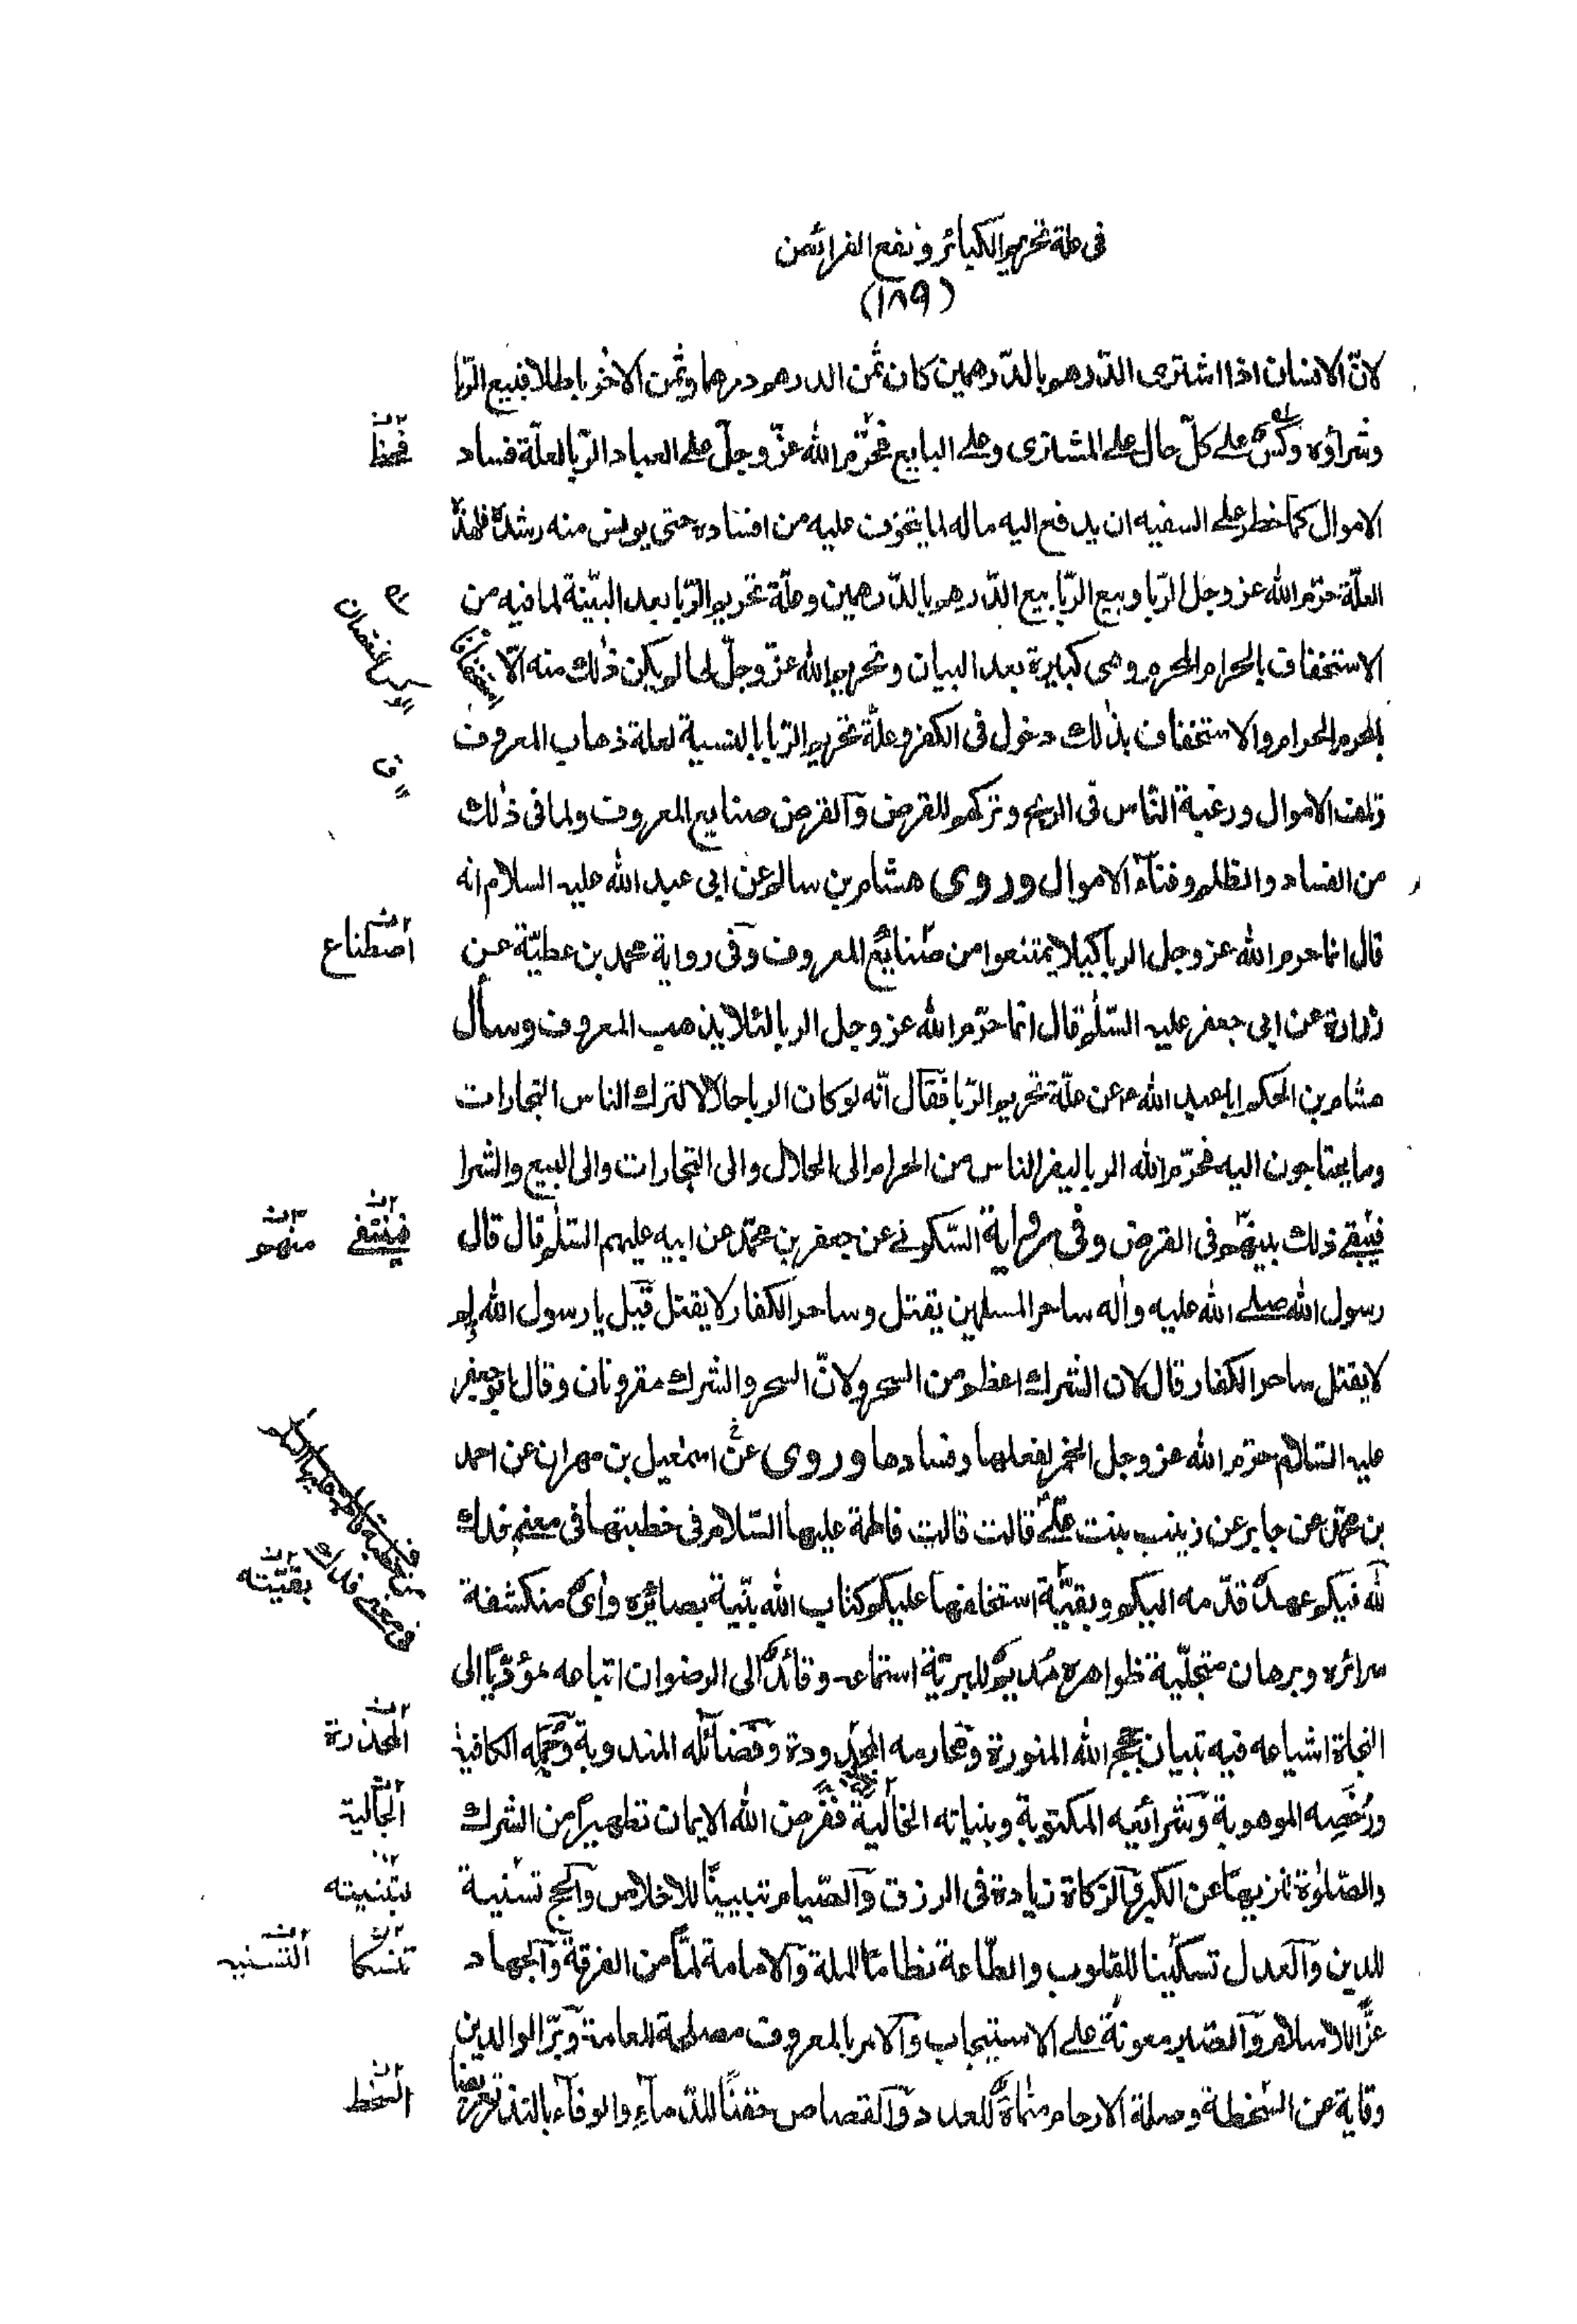 فى علة تحريم الكبائر و نفع الفرائض
(١٨٩)
لانّ الانسان اذا اشترى الدّرهم بالدّرهمين كان ثمن الدرهم درهما وثمن الاخر باطلا فبيع الرّبا
وشراؤه وكسٌ على كلّ حال على المشترى وعلى البايع فحرّم الله عزّ وجلّ على العباد الرّبا لعلّة فساد
الاموال كما حظر على السفيه ان يدفع اليه ماله لما يتخوّف عليه من افساده حتى يونس منه رشدٌ فلهذه
العلّة حرّم الله عز وجل الرّبا وبيع الرّبا بيع الدّرهم بالدّرهمين وعلّة تحريم الرّبا بعد البيّنة لما فيه من
الاستخفاف بالحرام المحرم وهى كبيرة بعد البيان وتحريم الله عزّ وجلّ لها لم يكن ذلك منه الّا استخفافا
بالمحرم الحرام والاستخفاف بذلك دخول فى الكفر وعلّة تحريم الرّبا بالنسية لعلة ذهاب المعروف
وتلف الاموال ورغبة النّاس فى الربح وتركهم للقرض والقرض صنايع المعروف ولما فى ذلك
من الفساد والظلم وفناء الاموال وروى هشام بن سالم عن ابى عبد الله عليه السلام انه
قال انما حرم الله عز وجل الربا كيلا يمتنعوا من صنايع المعروف وفى رواية محمد بن عطيّة عن
زرارة عن ابى جعفر عليه السّلم قال انّما حرّم الله عز وجل الربا لئلا يذهب المعروف وسأل
هشام بن الحكم ابا عبد الله ع عن علّة تحريم الرّبا فقال انّه لو كان الربا حلالا لترك الناس التجارات
وما يحتاجون اليه فحرّم الله الربا ليفر الناس من الحرام الى الحلال والى التجارات والى البيع والشرا
فيبقى ذلك بينهم فى القرض وفى رواية السّكونى عن جعفر بن محمّد عن ابيه عليهم السّلم قال قال
رسول الله صلى الله عليه واله ساحر المسلمين يقتل وساحر الكفار لا يقتل قيل يا رسول الله لم
لا يقتل ساحر الكفار قال لان الشرك اعظم من السحر ولانّ السحر والشرك مقرونان وقال ابو جعفر
عليه السّلام حرّم الله عز وجل الخمر لفعلها وفسادها وروى عن اسمعيل بن مهران عن احمد
بن محمّد عن جابر عن زينب بنت علىّ قالت قالت فاطمة عليها السّلام فى خطبتها فى معنى فدك
لله فيكم عهدٌ قدّمه اليكم وبقيّة استخلفها عليكم كتاب الله بيّنة بصائره وآىٌ منكشفة
سرائره وبرهان متجلّية ظواهره مُديمٌ للبريّة استماعه وقائدٌ الى الرضوان اتباعه مؤدّيًا الى
النجاة اشياعه فيه تبيان حجج الله المنورة ومحارمه المحدودة وفضائله المندوبة وجُمَلِه الكافية
ورُخَصِه الموهوبة وشرائعه المكتوبة وبيناته الخالية ففرض الله الايمان تطهيراً من الشرك
والصّلوٰة تنزيهًا عن الكبر والزكاة زيادة فى الرزق والصّيام تبيينًا للاخلاص والحج تسنية
للدين والعدل تسكينًا للقلوب والطّاعة نظامًا للملة والامامة لمًّا من الفرقة والجهاد
عزًّا للاسلام والصبر معونةً على الاستيجاب والامر بالمعروف مصلحة للعامة وبرّ الوالدين
وقاية عن السّخطة وصلة الارحام منماةً للعدد والقصاص حقنًا للدّماء والوفاء بالنذر تعريضا
اصطناع
منهم
بقيّته
المحذرة
الجالية
تنسكا
التسنيه
السّخط